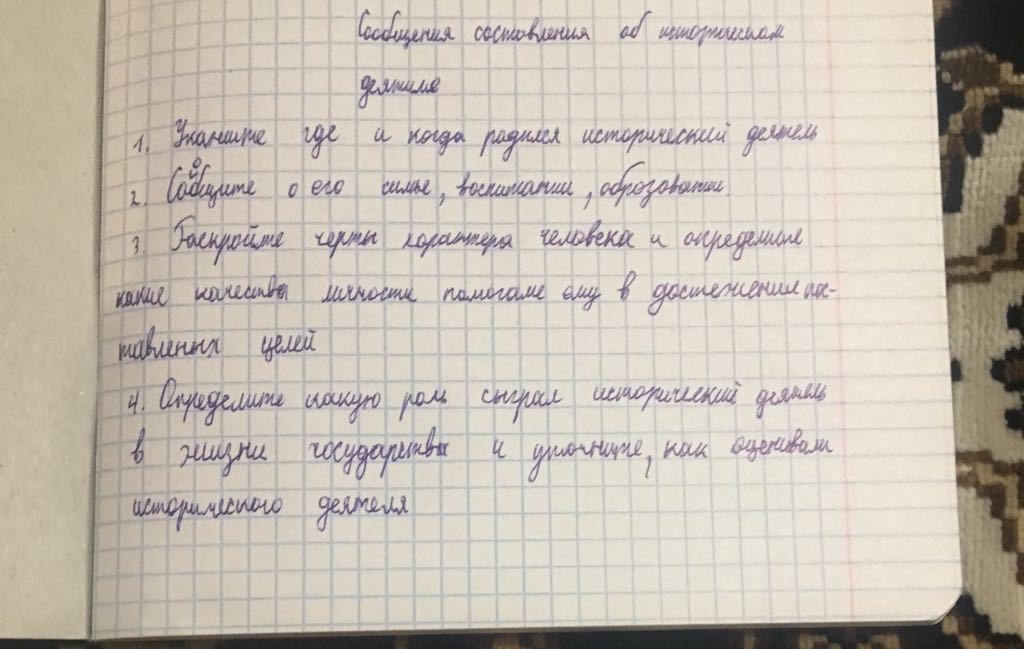 Сообщения составления об историческом
деятиле
1. Укажите где и когда родился исторический деятель
2. Сообщите о его симье, воспитании, образовании.
3. Раскройте черты характера человека и определите
какие качества личности помогали ему в достежении пос-
тавленных целей
4. Определите какую роль сыграл исторический деятель
в жизни государства и уточните, как оценивали
исторического деятеля